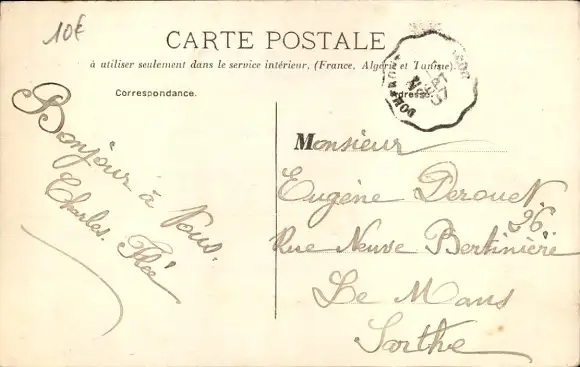 10€
CARTE POSTALE
à utiliser seulement dans le service intérieur, (France, Algérie et Tunisie).
Correspondance.
Adresse
Bonjour à Vous.
Charles. Flée
Monsieur
Eugène Derouet
26
Rue Neuve Bertinière
Le Mans
Sarthe